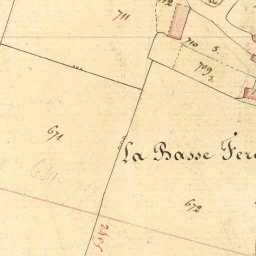 712
711
710
s.
709
671
La Basse Fer
672